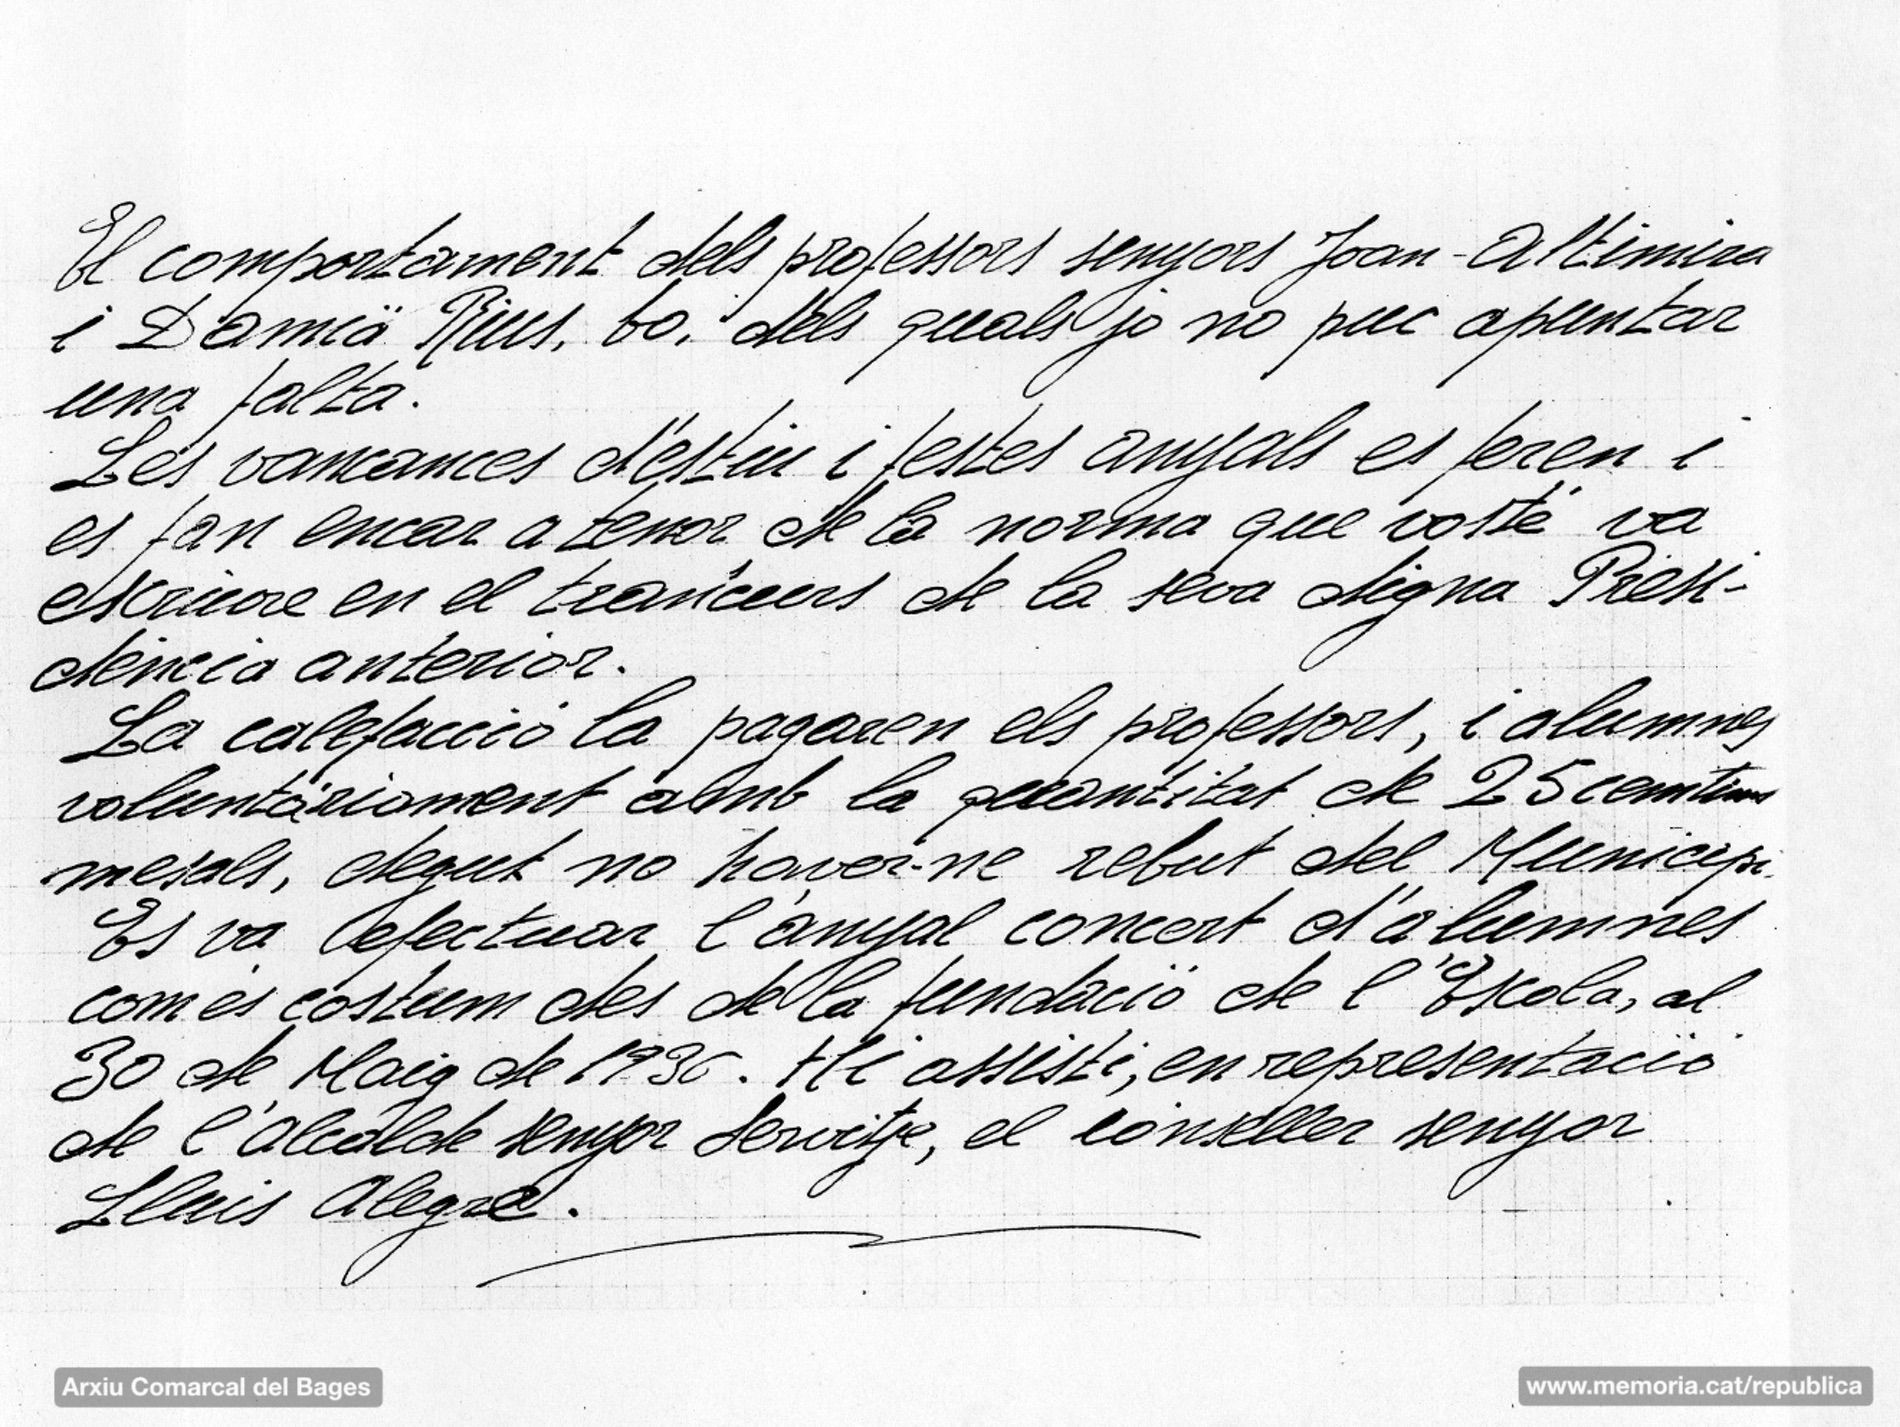 El comportament dels professors senyors Joan Altimira
i Damià Rius, bo, dels quals jo no puc apuntar
una falta.
Les vancances d'estiu i festes anyals es feren i
es fan encar a tenor de la norma que vostè va
escriure en el trancurs de la seva digna Presi-
dència anterior.
La calefacció la pagaren els professors, i alumnes
voluntàriament amb la quantitat de 25 centims
mesals, degut no haver-ne rebut del Municipi.
Es va efectuar l'anyal concert d'alumnes
com és costum des de la fundació de l'Escola, al
30 de Maig de 1936. Hi assistí, en representació
de l'Alcalde senyor Servitje, el conseller senyor
Lluis Alegre.
Arxiu Comarcal del Bages
www.memoria.cat/republica